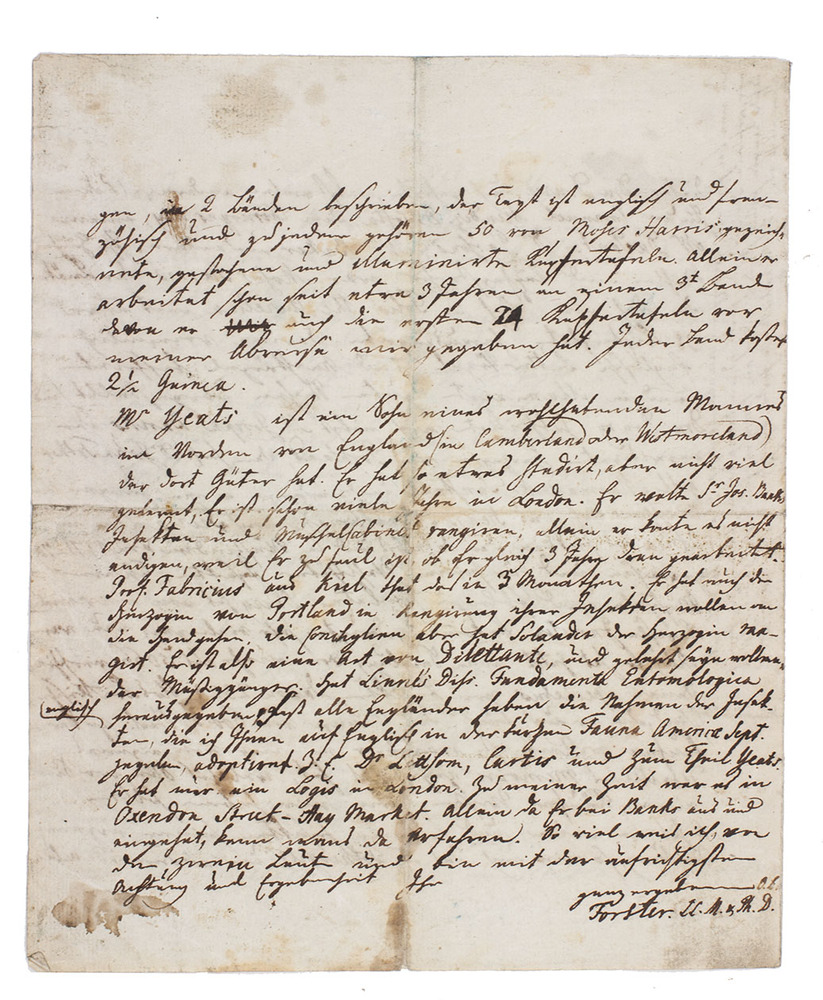 gen, in 2 Bänden beschrieben, der Text ist englisch und fran-
zösisch und zu jedem gehören 50 von Moses Harris gezeich-
nete, gestochene und illuminirte Kupfertafeln. Allein er
arbeitet schon seit etwa 3 Jahren an einem 3t Bande
davon er auch die ersten 24 Kupfertafeln vor
meiner Abreise mir gegeben hat. Jeder Band kostet
2 1/2 Guinea.
Mr Yeats ist ein Sohn eines wohlhabenden Mannes
im Norden von England (in Cumberland oder Westmoreland)
der dort Güter hat. Er hat so etwas studirt, aber nicht viel
gelernt, Er ist schon viele Jahre in London. Er wolte Sr Jos. Banks
Insekten und rangiren, allein er konte es nicht
endigen, weil Er zu faul ist ob Er gleich 3 Jahre dran gearbeitet.
Prof. Fabricius aus Kiel that das in 3 Monathen. Er hat auch der
Herzogin von Portland in Rangirung ihrer Insekten wollen an
die Hand gehen. Die Conchylien aber hat Solander der Herzogin ran-
girt. Er ist also eine Art von Dilettante, und gelehrt seyn wollen-
der Müssiggänger. Hat Linnéi Diss. Fundamenta Entomologica
(englisch) herausgegeben. Fast alle Engländer haben die Nahmen der Insek-
ten, die ich Ihnen auf Englisch in der Fauna Americæ Sept.
gegeben, adoptiret z. E. Dr Lettsom, Curtis und zum Theil Yeats.
Er hat nur ein Logis in London. Zu meiner Zeit war es in
Oxendon Street - Hay Market. Allein da Er bei Banks aus und
eingehet, kann mans da erfahren. So viel weis ich, von
den zween Leut und bin mit der aufrichtigsten
Achtung und Ergebenheit Ihr
ganz ergebenster
Forster. LL. M. & Ph. D.